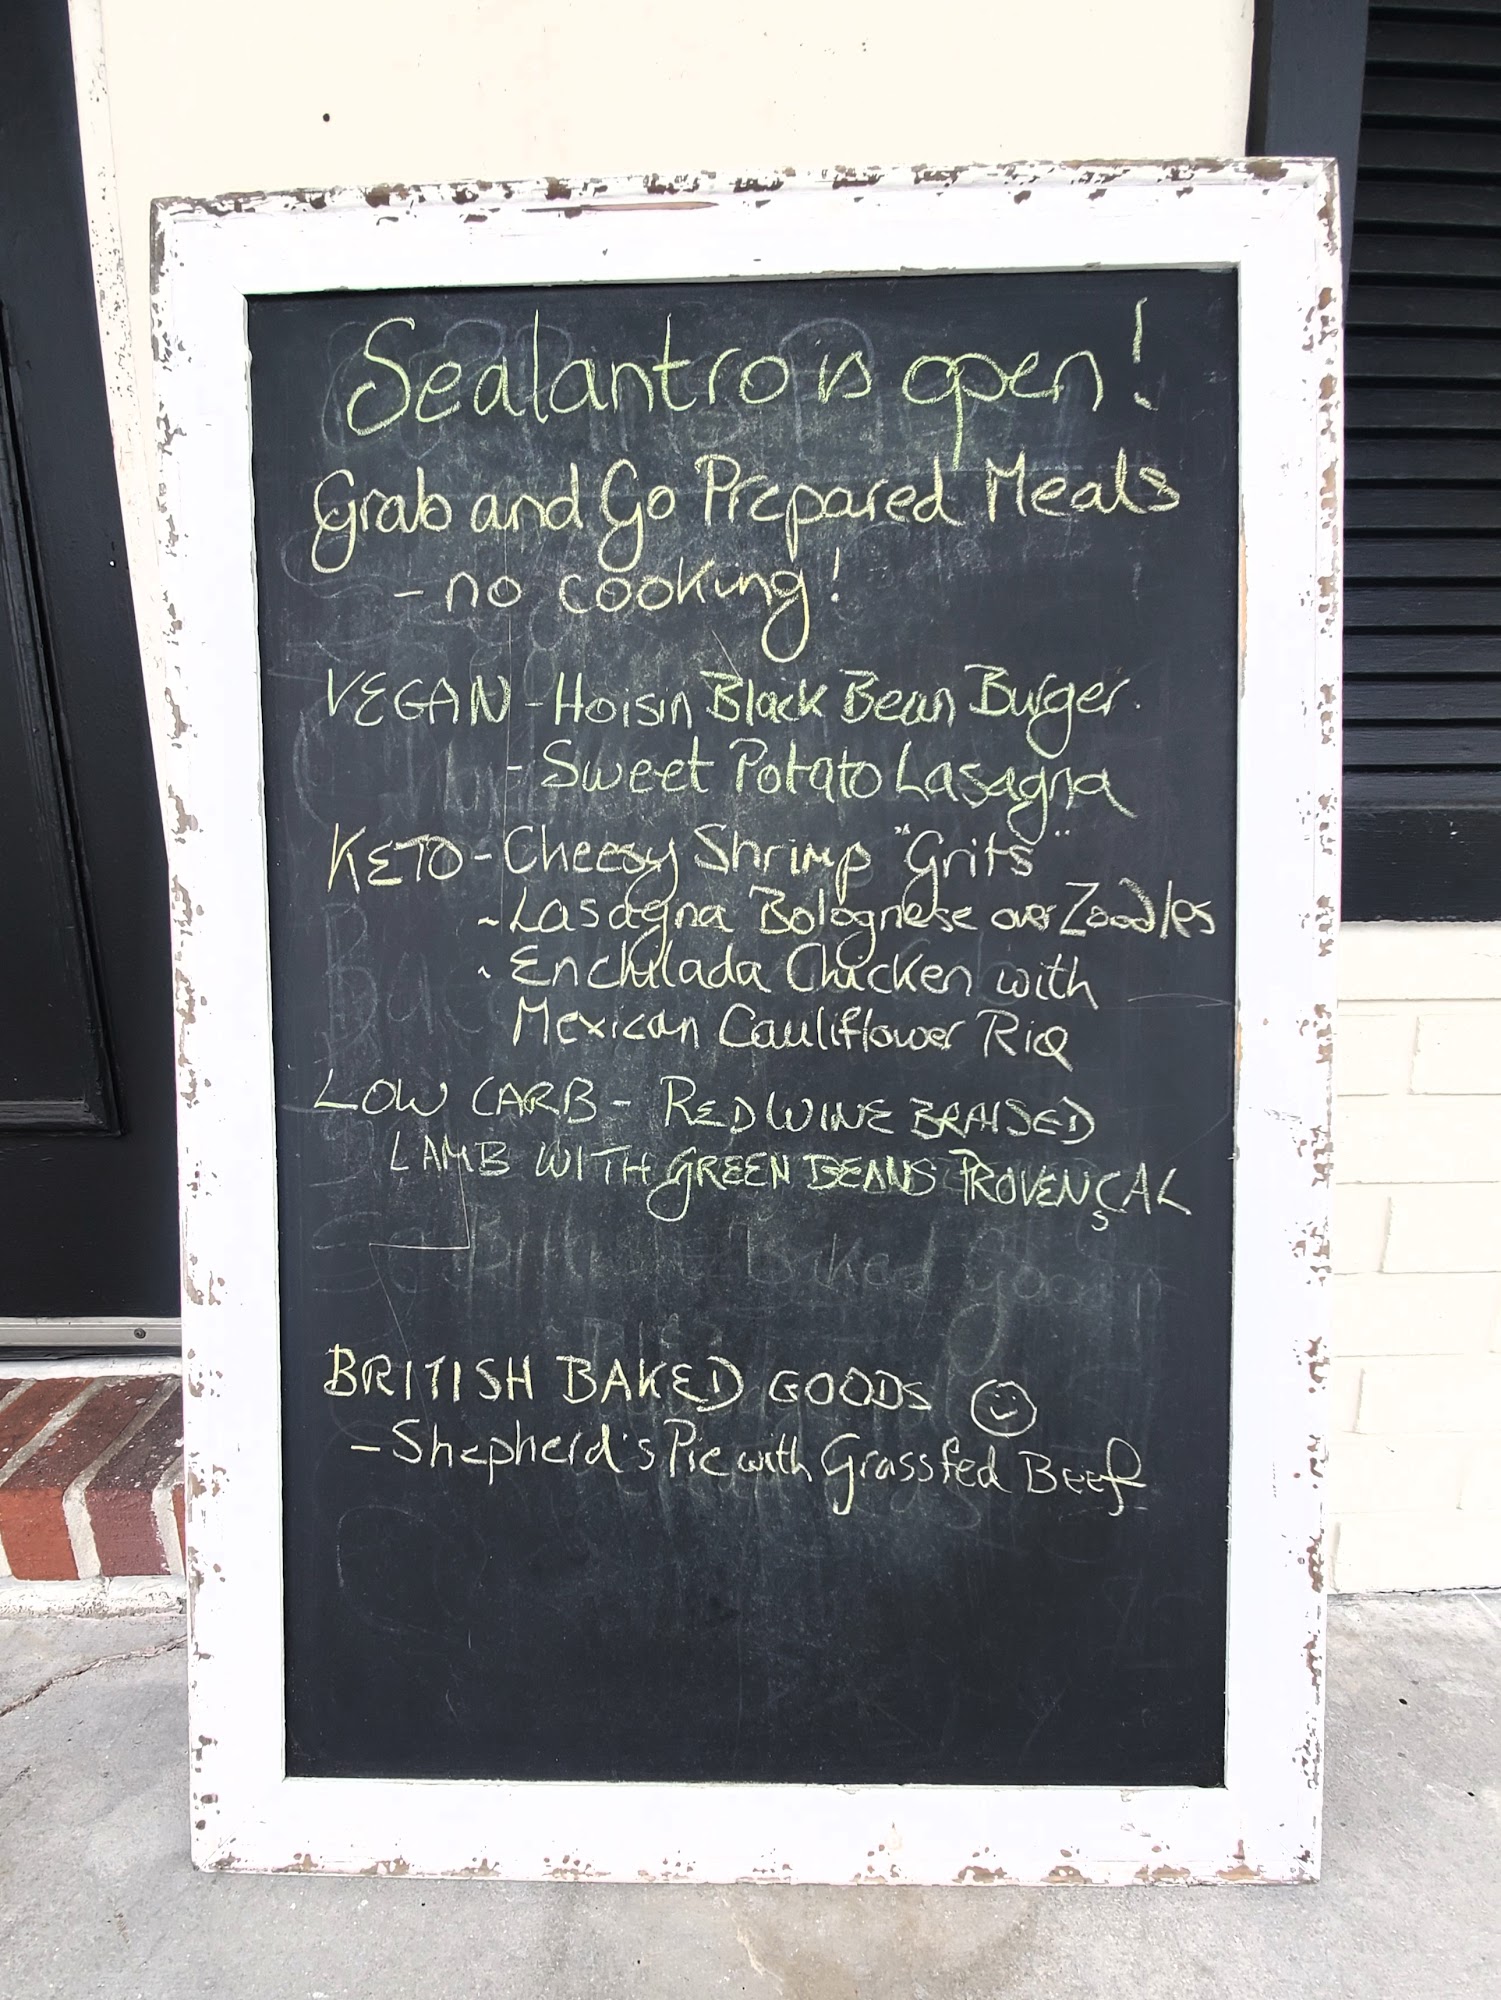 Sealantro is open!
Grab and Go Prepared Meals
- no cooking!
VEGAN - Hoisin Black Bean Burger.
- Sweet Potato Lasagna
KETO - Cheesy Shrimp "Grits"
- Lasagna Bolognese over Zoodles
- Enchilada Chicken with
Mexican Cauliflower Rice
LOW CARB - RED WINE BRAISED
LAMB WITH GREEN BEANS PROVENÇAL
BRITISH BAKED GOODS
- Shepherd's Pie with Grassfed Beef